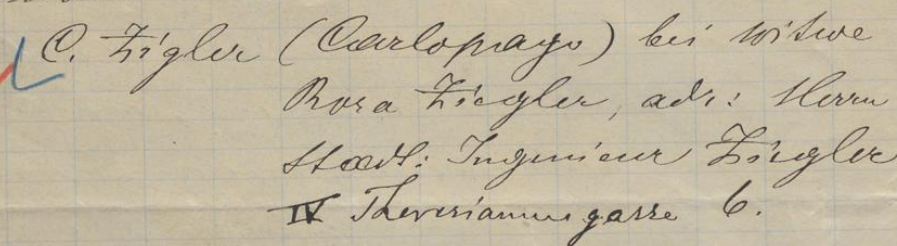 C. Zigler (Carlopago) bei Witwe
Rosa Ziegler, adr: Herrn
Stadt: Ingenieur Ziegler
IV Theresianumgasse 6.